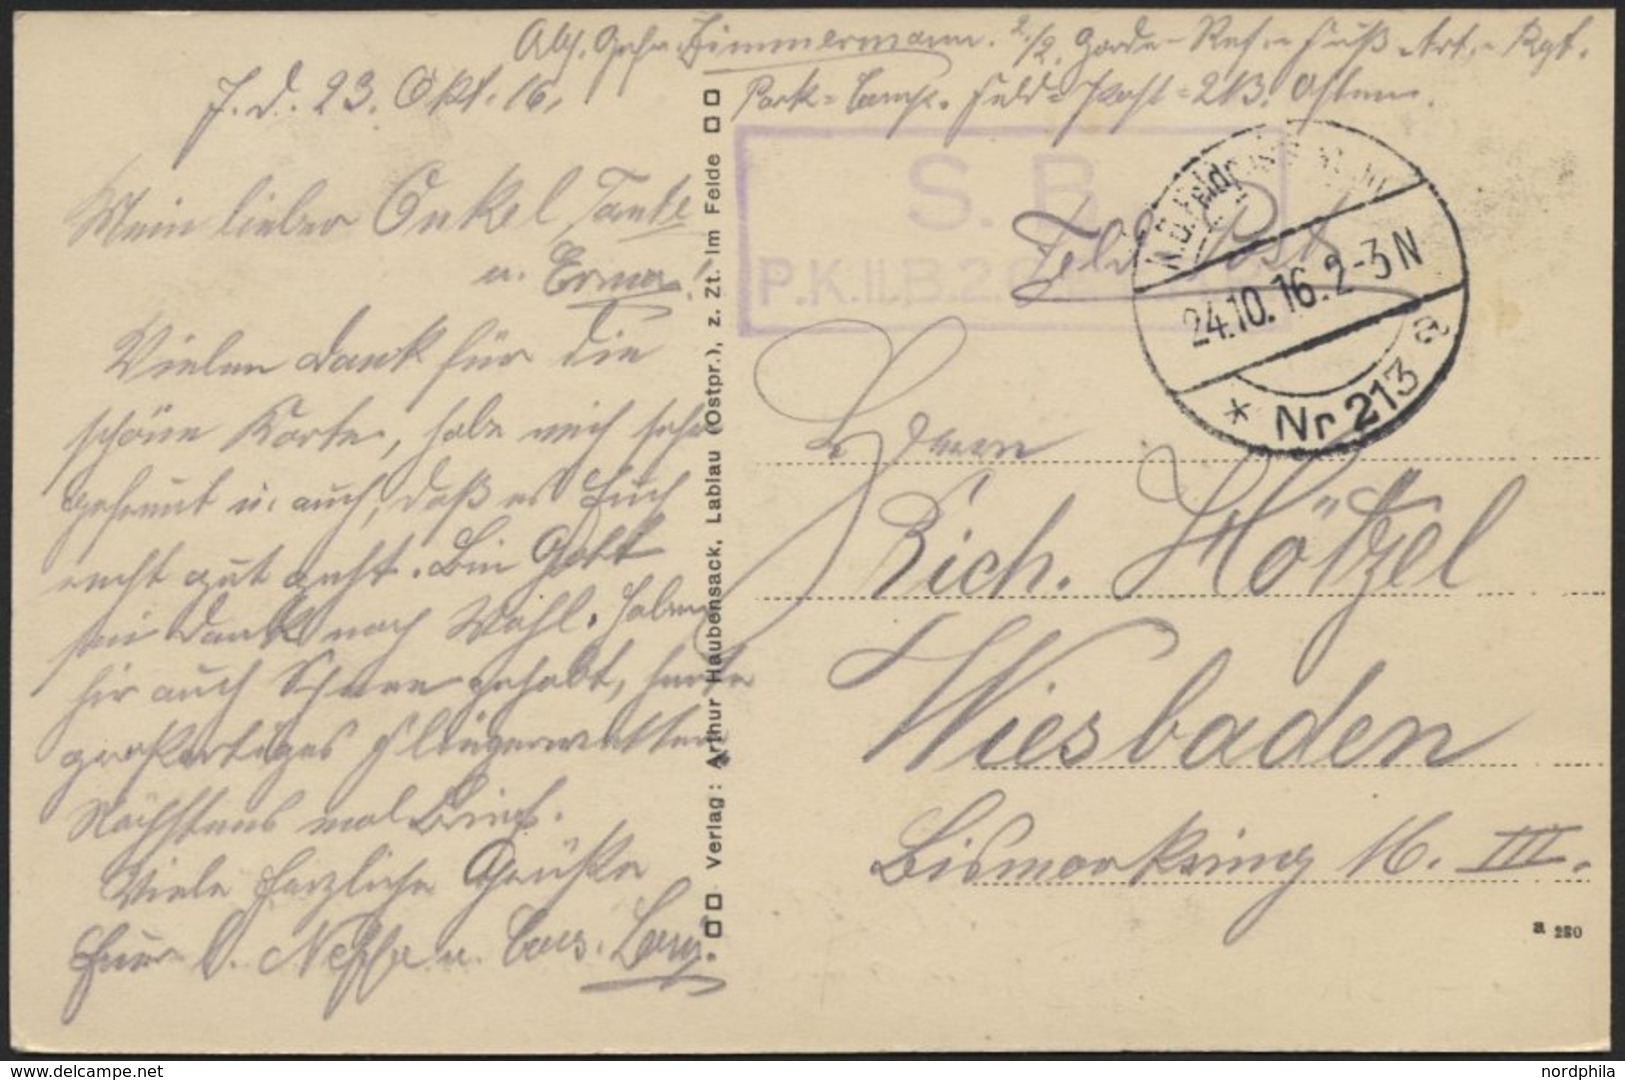 Abs. Gefr. Zimmermann. 2./2. Garde-Res.-Fuß-Art.-Rgt.
Park=Comp. Feld=Post=213. Osten.
J. d. 23. Okt. 16.
Mein lieber Onkel, Tante
u. Erna!
Vielen Dank für die
schöne Karte, habe mich sehr
gefreut u. auch, daß es Euch
recht gut geht. Bin Gott
sei Dank noch Wohl. Haben
hir auch Schnee gehabt, heute
großartiges Fliegerwetter
Nächstens mal Brief.
Viele herzliche Grüße
Euer l. Neffe u. Cous.
Verlag: Arthur Haubensack, Labiau (Ostpr.), z. Zt. im Felde
S. B.
P.K.II.B.2.
Feld Post
K.D. Feldp
24.10.16. 2-3 N
* Nr 213 a
Herrn
Rich. Hötzel
Wiesbaden
Bismarkring 16. III.
a 280
nordphila.com
nordphila